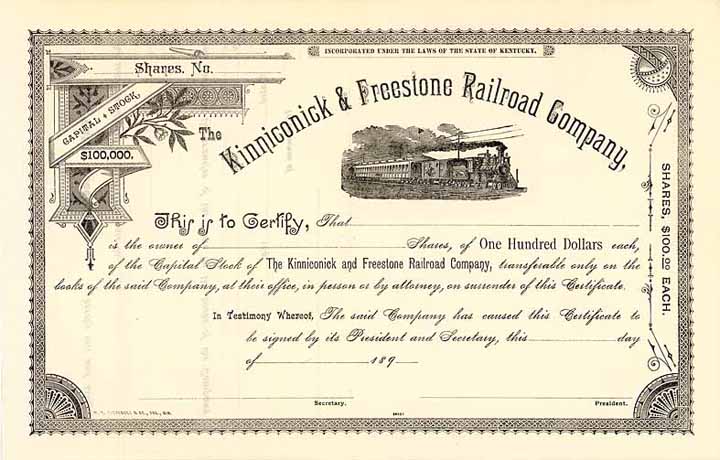 INCORPORATED UNDER THE LAWS OF THE STATE OF KENTUCKY.
Shares. No.
CAPITAL STOCK,
$100,000.
The Kinniconick & Freestone Railroad Company,
This is to Certify, That
is the owner of Shares, of One Hundred Dollars each,
of the Capital Stock of The Kinniconick and Freestone Railroad Company, transferable only on the
books of the said Company, at their office, in person or by attorney, on surrender of this Certificate.
In Testimony Whereof, The said Company has caused this Certificate to
be signed by its President and Secretary, this day
of 189
Secretary. President.
SHARES, $100.00 EACH.